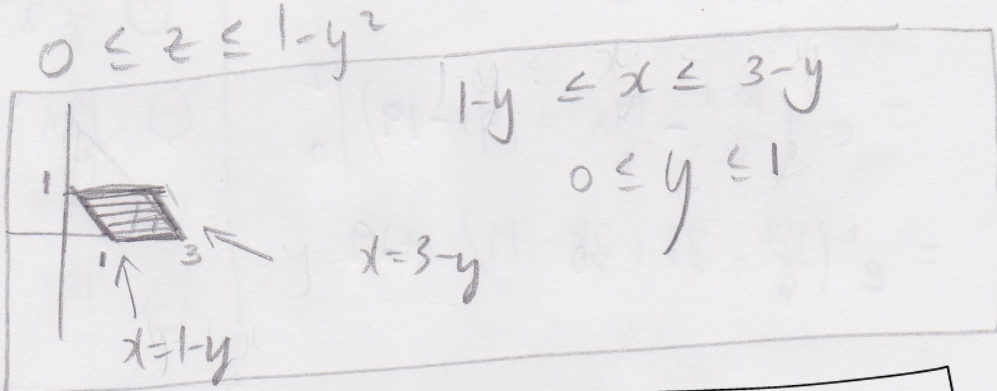 0 ≤ z ≤ 1-y²
1-y ≤ x ≤ 3-y
0 ≤ y ≤ 1
1
1
3
x=3-y
x=1-y